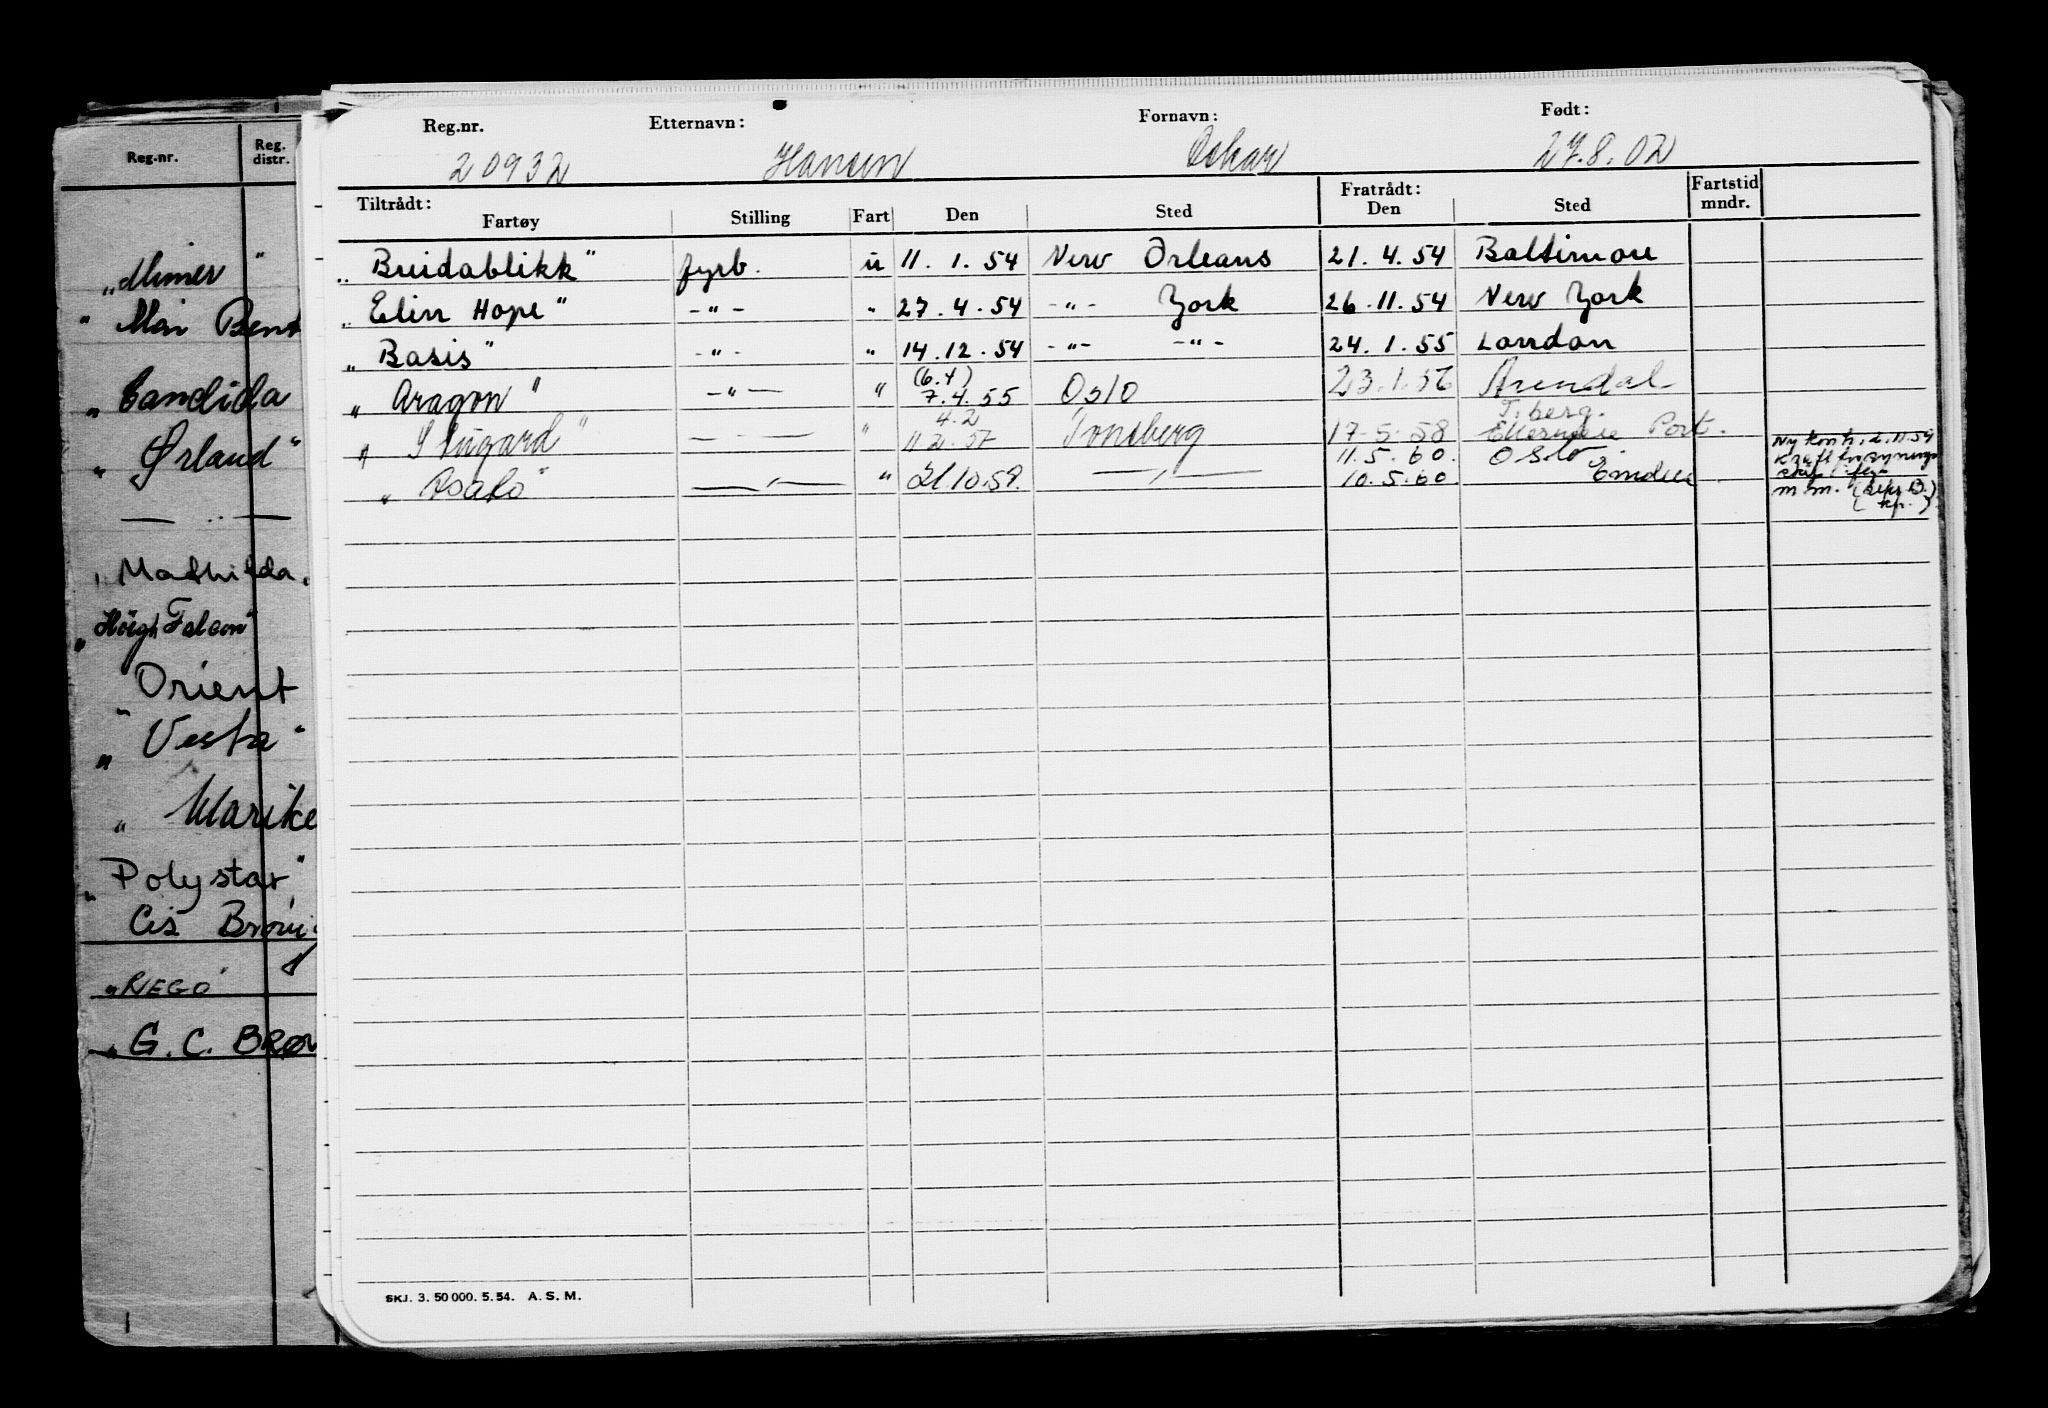 Reg.nr. Reg. distr.
"Mimer"
" Mari Bent
" Candida
" Ørland"
— " —
" Mathilda "
" Höegh Falcon"
" Orient
" Vesta "
" Marike
" Polystar"
Cis Brøvi
" REGO
" G. C. BRØV
Reg.nr. Etternavn: Fornavn: Født:
20932 Hansen Oskar 27.8.02
Tiltrådt: Fratrådt: Fartstid mndr.
Fartøy Stilling Fart Den Sted Den Sted
" Breidablikk" fyrb. u 11. 1. 54 New Orleans 21. 4. 54 Baltimore
" Elin Hope " - " - " 27. 4. 54 - " - York 26. 11. 54 New York
" Basis " - " - " 14. 12. 54 - " - - " - 24. 1. 55 London
" Aragon " - " - " (6.4) 7.4.55 Oslo 23.1.56 Arendal
" " — " — " 4.2 11.2.57 Tønsberg 17-5-58 T.berg. Ellesmere Port.
11.5.60. Oslo
" Asalo " — " — " 21.10.58. — " — 10.5.60 Emden
Ny kontr. 2.11.59
m m.